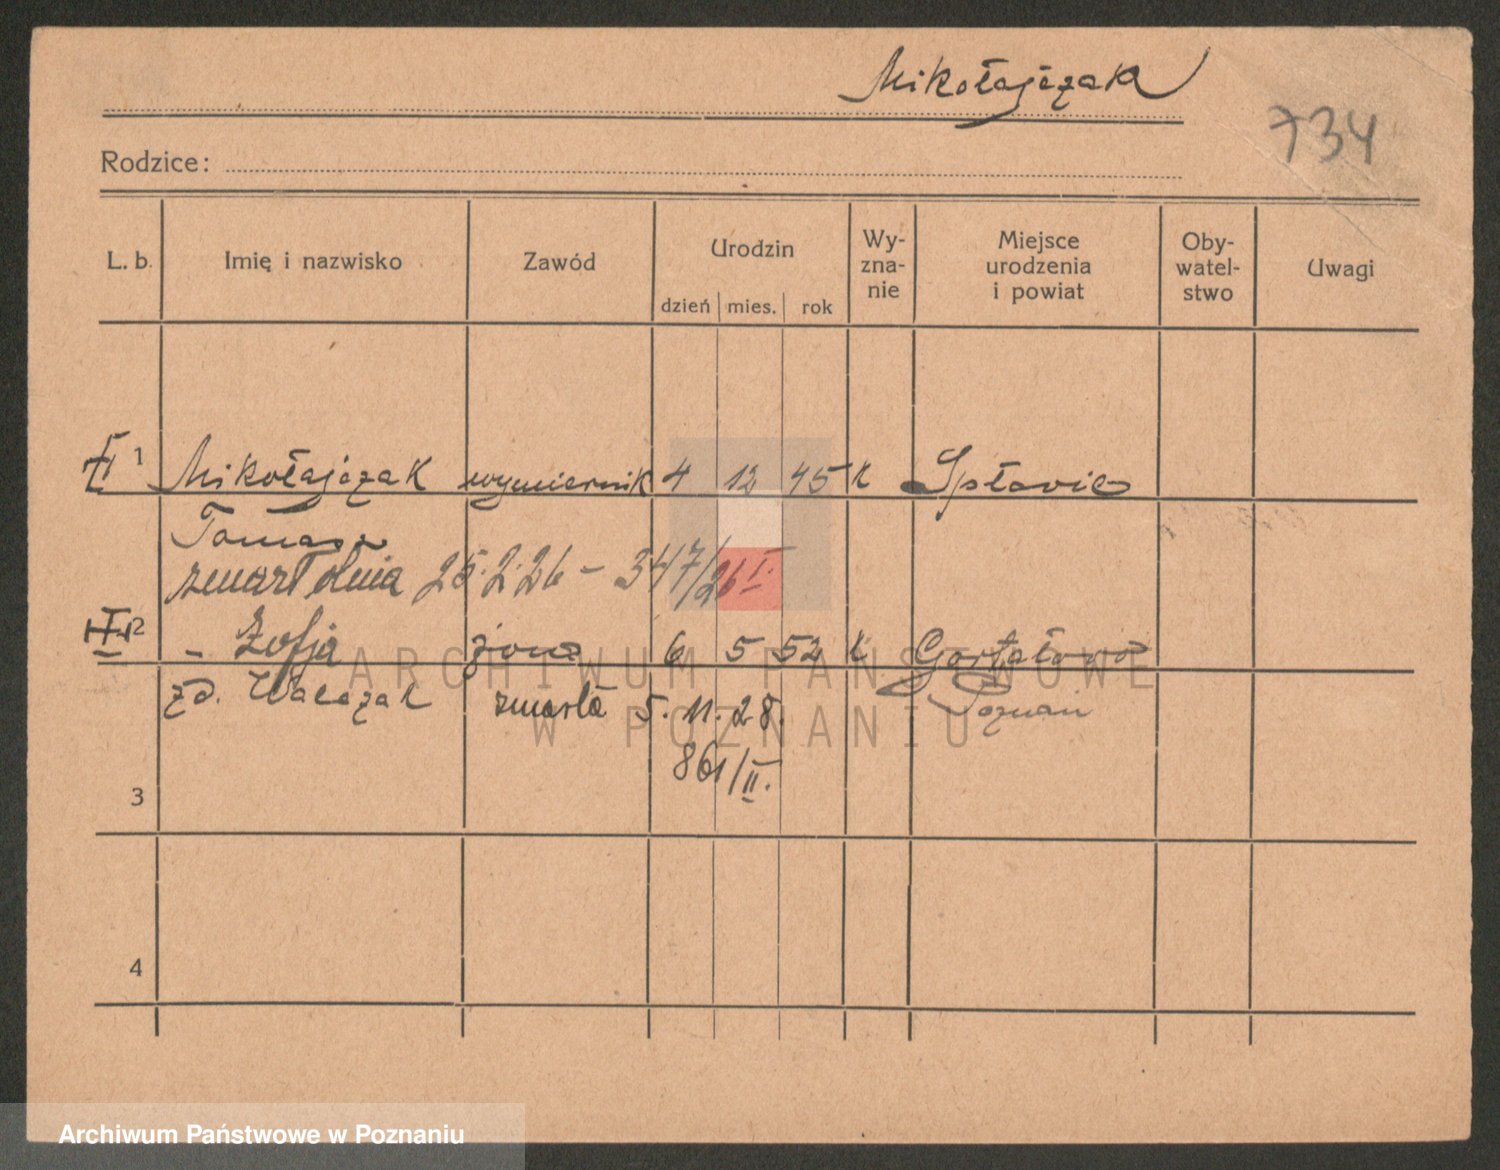 Mikołajczak
734
Rodzice:
L. b. Imię i nazwisko Zawód Urodzin dzień mies. rok Wy-zna-nie Miejsce urodzenia i powiat Oby-watel-stwo Uwagi
1 Mikołajczak wymiernik 4 12 45 k Spławie
Tomasz
zmarł dnia 25.2.26 - 347/26 I.
2 - Zofja żona 6 5 52 k
zd. Walczak zmarła 5. 11. 28. Poznań
861/II.
3
4
ARCHIWUM PAŃSTWOWE
W POZNANIU
Archiwum Państwowe w Poznaniu